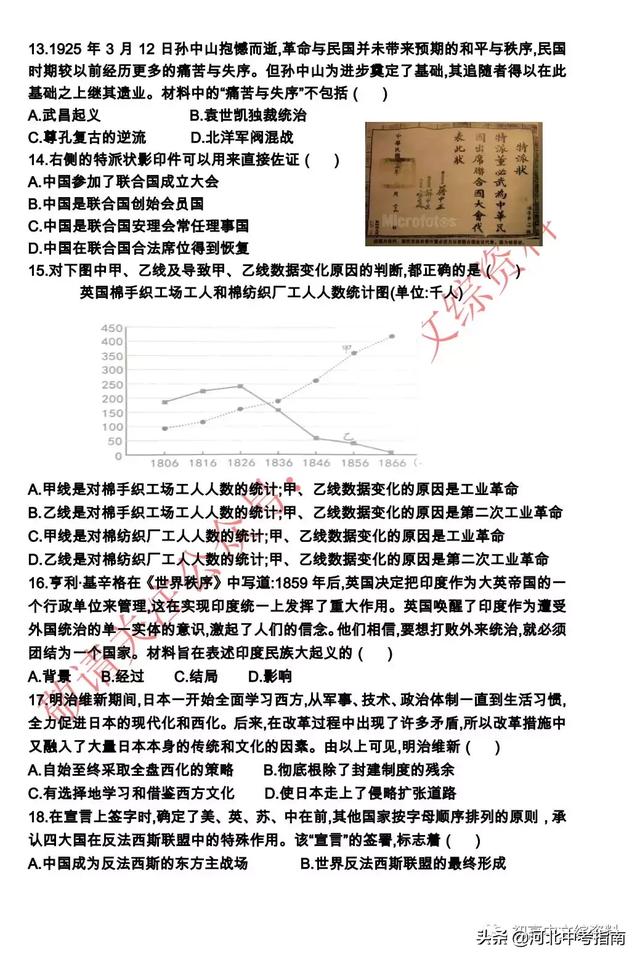 13.1925 年 3 月 12 日孙中山抱憾而逝,革命与民国并未带来预期的和平与秩序,民国
时期较以前经历更多的痛苦与失序。但孙中山为进步奠定了基础,其追随者得以在此
基础之上继其遗业。材料中的“痛苦与失序”不包括（ ）
A.武昌起义 B.袁世凯独裁统治
C.尊孔复古的逆流 D.北洋军阀混战
14.右侧的特派状影印件可以用来直接佐证（ ）
A.中国参加了联合国成立大会
B.中国是联合国创始会员国
C.中国是联合国安理会常任理事国
D.中国在联合国合法席位得到恢复
特派状
特派董必武為中華民
國出席聯合國大會代
表此狀
Microfotos
15.对下图中甲、乙线及导致甲、乙线数据变化原因的判断,都正确的是（ ）
英国棉手织工场工人和棉纺织厂工人人数统计图(单位:千人)
450
400
350
300
250
200
150
100
50
0
甲
乙
1806 1816 1826 1836 1846 1856 1866
A.甲线是对棉手织工场工人人数的统计;甲、乙线数据变化的原因是工业革命
B.乙线是对棉手织工场工人人数的统计;甲、乙线数据变化的原因是第二次工业革命
C.甲线是对棉纺织厂工人人数的统计;甲、乙线数据变化的原因是工业革命
D.乙线是对棉纺织厂工人人数的统计;甲、乙线数据变化的原因是第二次工业革命
16.亨利·基辛格在《世界秩序》中写道:1859 年后,英国决定把印度作为大英帝国的一
个行政单位来管理,这在实现印度统一上发挥了重大作用。英国唤醒了印度作为遭受
外国统治的单一实体的意识,激起了人们的信念。他们相信,要想打败外来统治,就必须
团结为一个国家。材料旨在表述印度民族大起义的（ ）
A.背景 B.经过 C.结局 D.影响
17.明治维新期间,日本一开始全面学习西方,从军事、技术、政治体制一直到生活习惯,
全力促进日本的现代化和西化。后来,在改革过程中出现了许多矛盾,所以改革措施中
又融入了大量日本本身的传统和文化的因素。由以上可见,明治维新（ ）
A.自始至终采取全盘西化的策略 B.彻底根除了封建制度的残余
C.有选择地学习和借鉴西方文化 D.使日本走上了侵略扩张道路
18.在宣言上签字时,确定了美、英、苏、中在前,其他国家按字母顺序排列的原则，承
认四大国在反法西斯联盟中的特殊作用。该“宣言”的签署,标志着（ ）
A.中国成为反法西斯的东方主战场 B.世界反法西斯联盟的最终形成
敬请关注公众号：
文综资料
头条 @河北中考指南